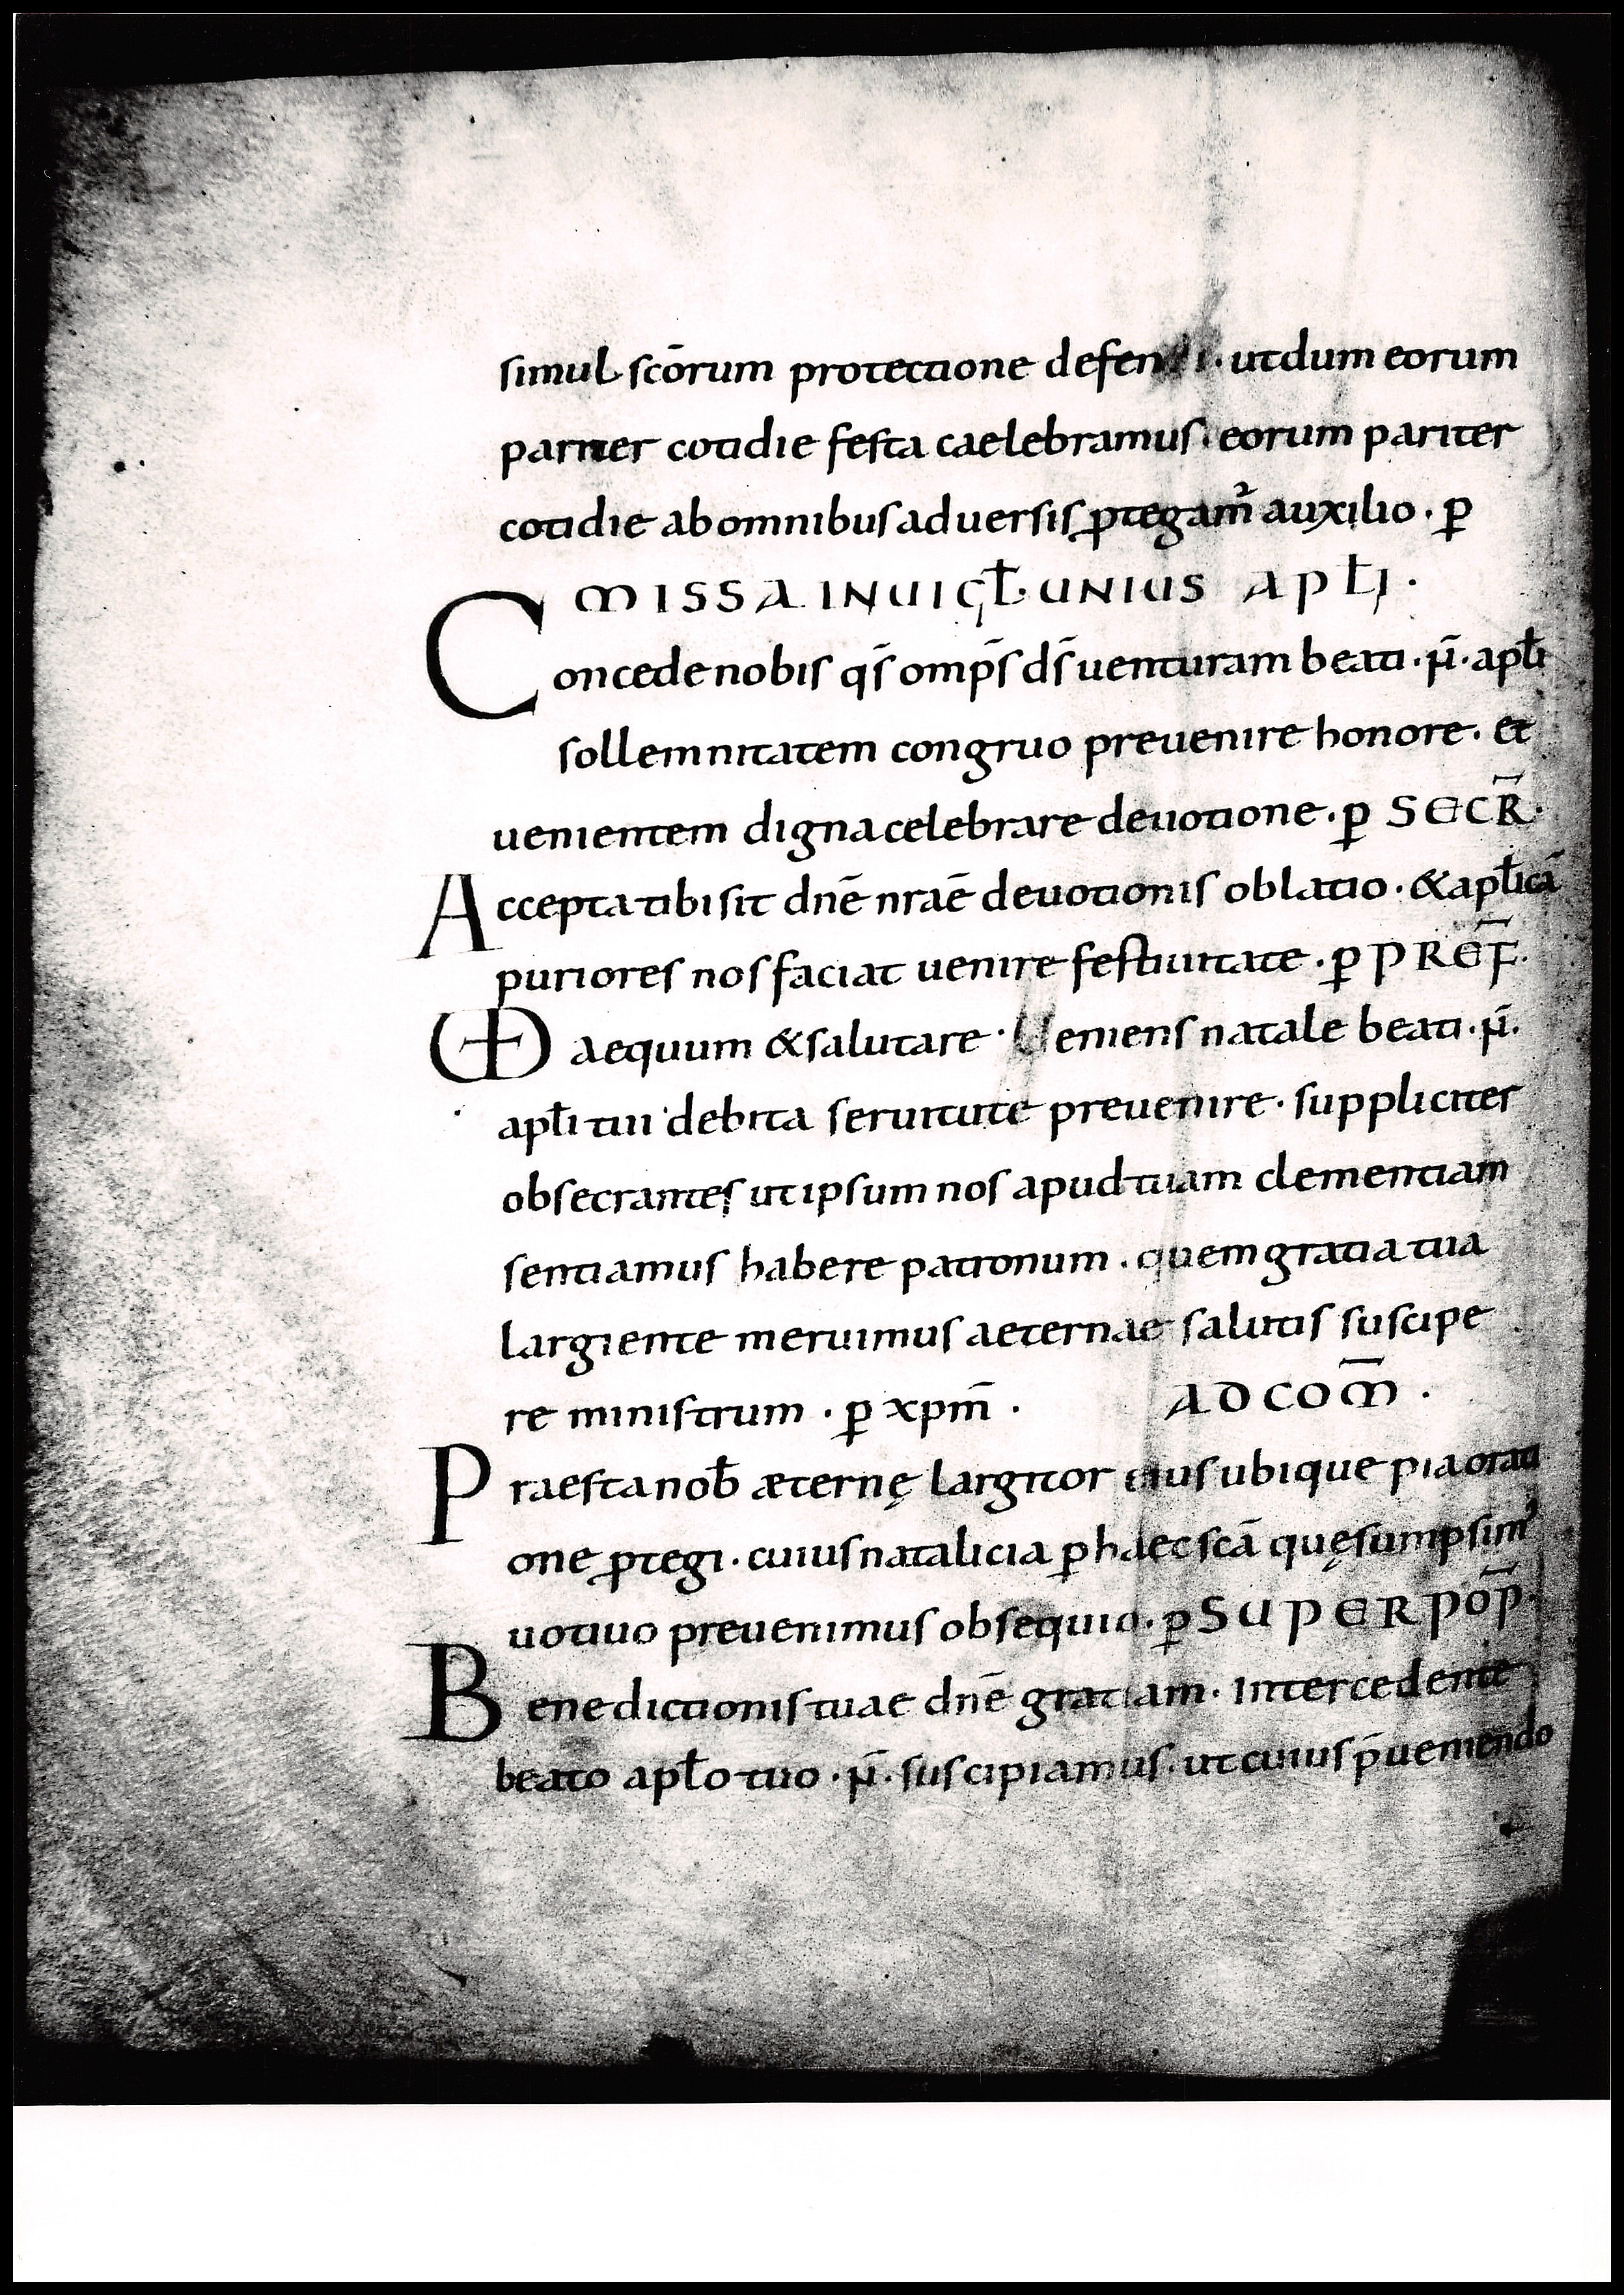 simul scōrum protectione defendi · ut dum eorum
pariter cotidie festa caelebramus · eorum pariter
cotidie ab omnibus aduersis ꝓtegam̄ auxilio · ꝑ
MISSA IN UIGƚ · UNIUS APƚI ·
Concede nobis qs̄ omp̄s ds̄ uenturam beati · ñ · apƚi
sollemnitatem congruo preuenire honore · et
uenientem digna celebrare deuotione · ꝑ SECR̄ ·
Accepta tibi sit dnē nraē deuotionis oblatio · & apƚicā
puriores nos faciat uenire festiuitate · ꝑ PREF̄ ·
UD aequum & salutare · Ueniens natale beati · ñ ·
apƚi tui debita seruitute preuenire · suppliciter
obsecrantes ut ipsum nos apud tuam clementiam
sentiamus habere patronum · quem gratia tua
largiente meruimus aeternae salutis suscipe
re ministrum · ꝑ xpm̄ · AD COM̄ ·
Praesta noƀ æternę largitor eius ubique pia orati
one ꝓtegi · cuius natalicia ꝑ haec scā quę sumpsim᾿
uotiuo preuenimus obsequio · ꝑ SUPER POP̄ ·
Benedictionis tuae dnē gratiam · Intercedente
beato apƚo tuo · ñ · suscipiamus · ut cuius p̄ueniendo